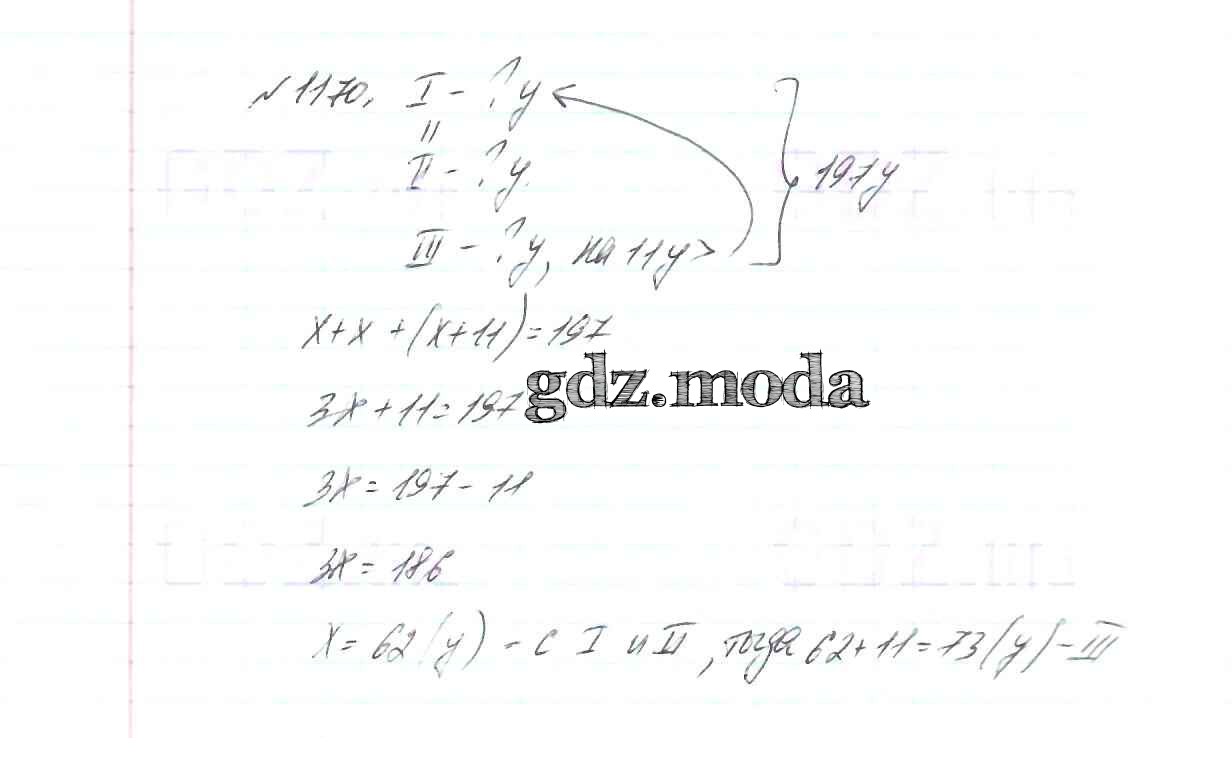 №1170. I - ? ц
II
II - ? ц.
III - ? ц, на 11 ц >
} 197 ц
x + x + (x + 11) = 197
3x + 11 = 197
gdz.moda
3x = 197 - 11
3x = 186
x = 62 (ц) - с I и II, тогда 62 + 11 = 73 (ц) - III